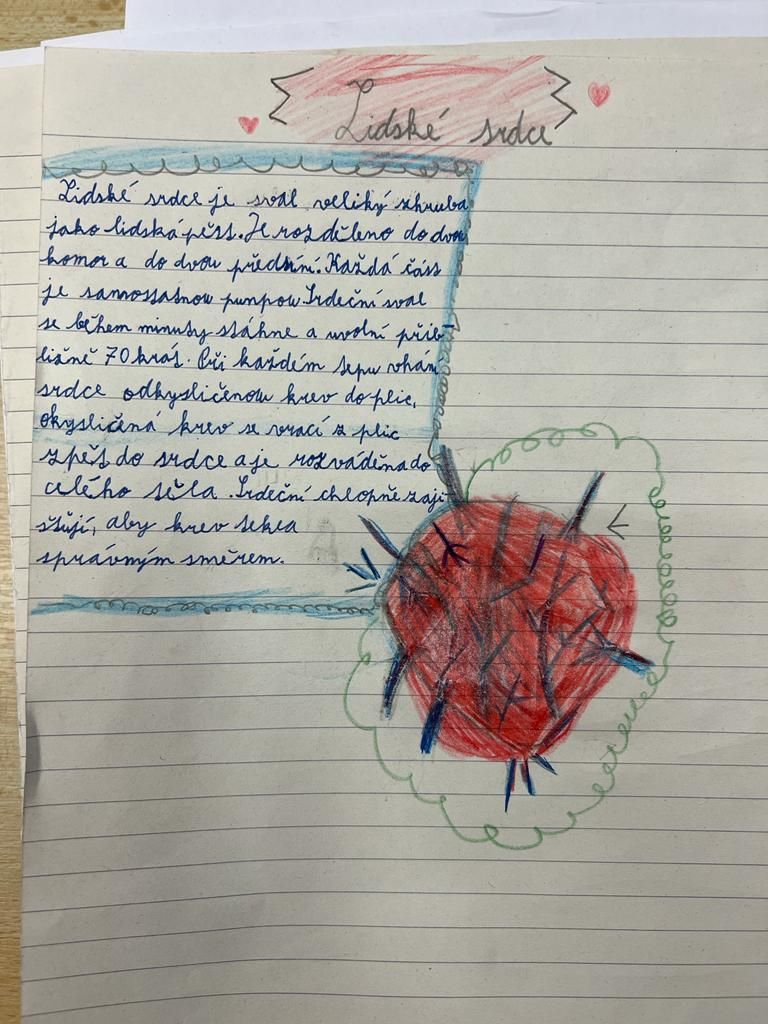 Lidské srdce
Lidské srdce je sval veliký zhruba
jako lidská pěst. Je rozděleno do dvou
komor a do dvou předsíní. Každá část
je samostatnou pumpou. Srdeční sval
se během minuty stáhne a uvolní přib-
ližně 70 krát. Při každém tepu vhání
srdce odkysličenou krev do plic,
okysličená krev se vrací z plic
zpět do srdce a je rozváděna do
celého těla. Srdeční chlopně zaji-
šťují, aby krev tekla
správným směrem.